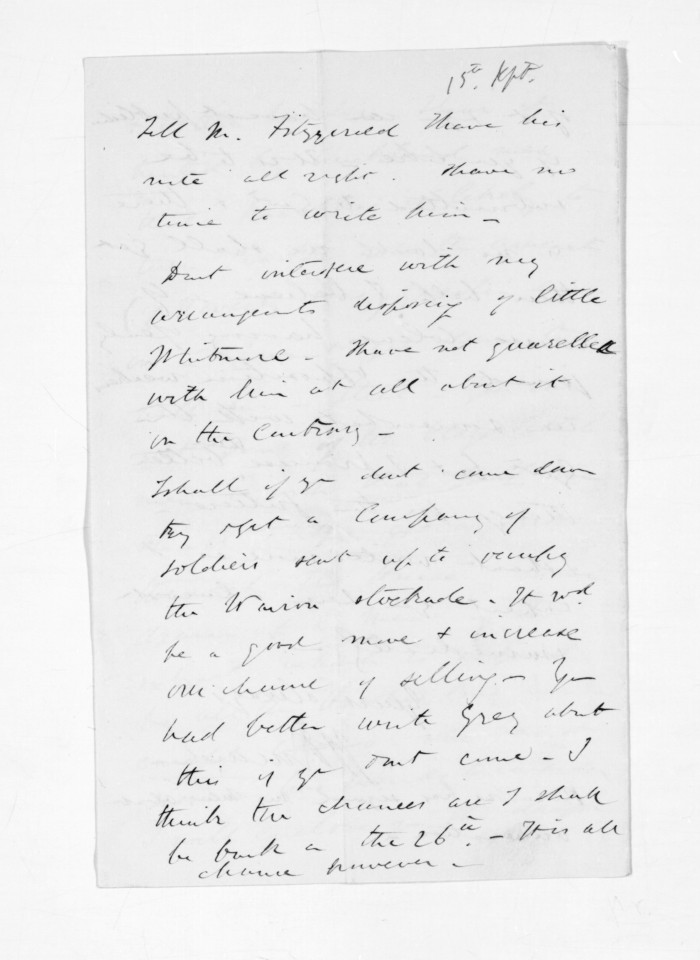 15th Sept.
Tell Mr. Fitzgerald I have his
note all right. I have no
time to write him —
Dont interfere with my
arrangements disposing of little
Whitmore — I have not quarelled
with him at all about it
on the Contrary —
I shall if yr dont come down
try & get a Company of
soldiers sent up to occupy
the Wairoa stockade. It wd.
be a good move & increase
our chance of selling — Yr
had better write Grey about
this if yr dont come — I
think the chances are I shall
be back on the 26th — It is all
chance however —